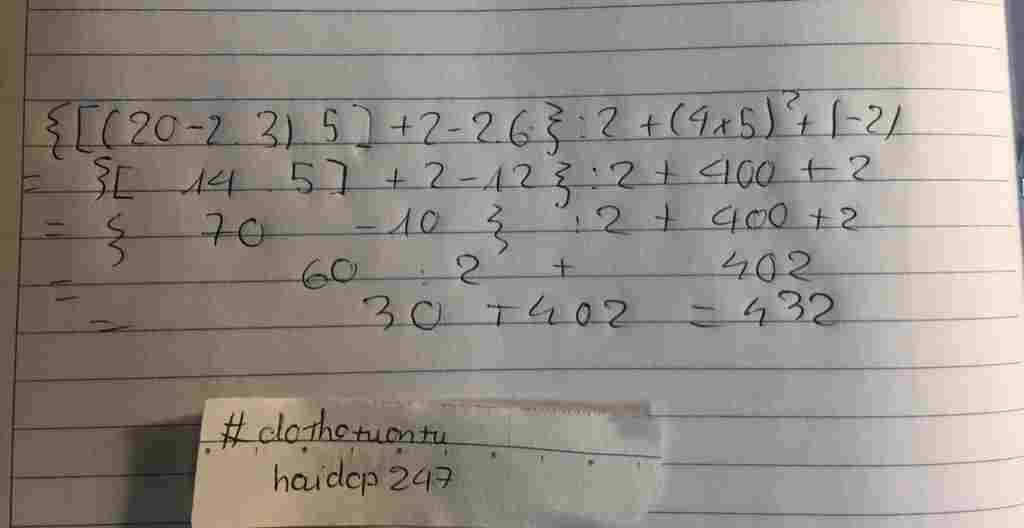 {[(20-2.3).5]+2-2.6}:2+(4x5)²+|-2|
= {[ 14 . 5] + 2-12}:2 + 400 + 2
= { 70 -10 } :2 + 400 +2
= 60 : 2 + 402
= 30 +402 = 432
# dothotuontu
haidcp 247